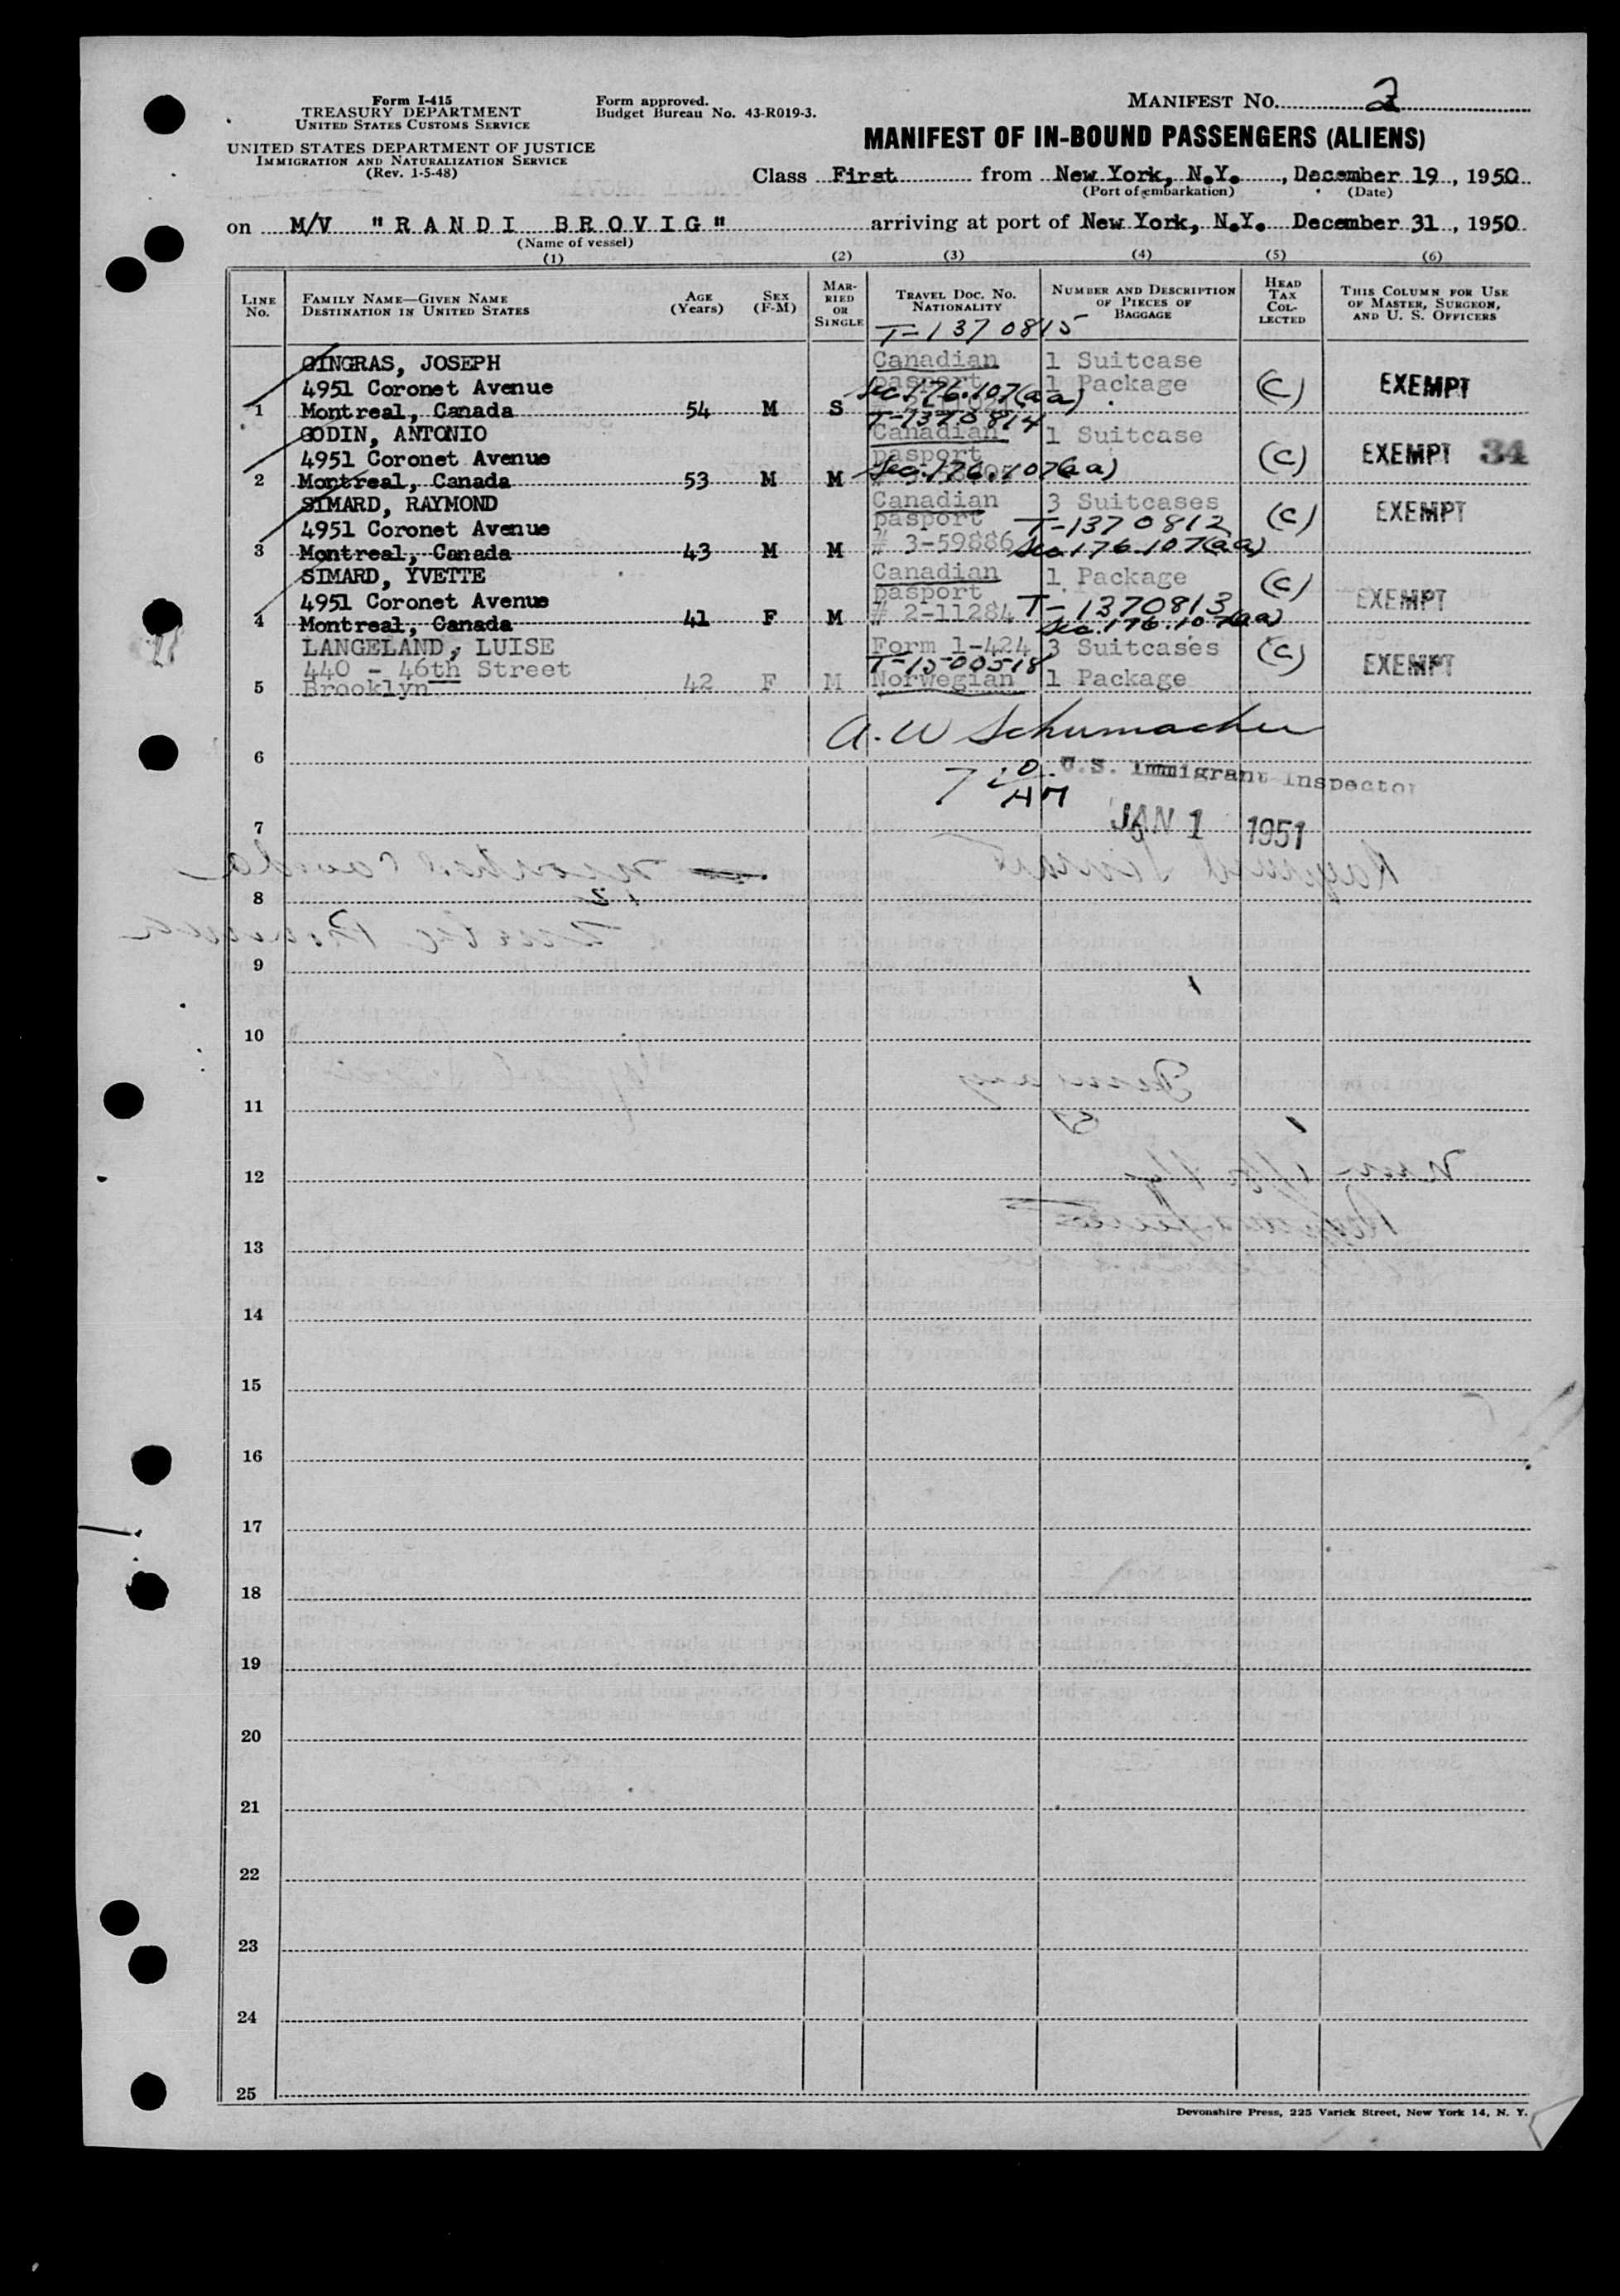 Form I-415
TREASURY DEPARTMENT
UNITED STATES CUSTOMS SERVICE
UNITED STATES DEPARTMENT OF JUSTICE
IMMIGRATION AND NATURALIZATION SERVICE
(Rev. 1-5-48)
Form approved.
Budget Bureau No. 43-R019-3.
MANIFEST NO. 2
MANIFEST OF IN-BOUND PASSENGERS (ALIENS)
Class First from New York, N.Y., December 19, 1950
(Port of embarkation) (Date)
on M/V "RANDI BROVIG" arriving at port of New York, N.Y. December 31, 1950
(Name of vessel)
(1) (2) (3) (4) (5) (6)
LINE NO. FAMILY NAME—GIVEN NAME DESTINATION IN UNITED STATES AGE (Years) SEX (F-M) MARRIED OR SINGLE TRAVEL DOC. NO. NATIONALITY NUMBER AND DESCRIPTION OF PIECES OF BAGGAGE HEAD TAX COLLECTED THIS COLUMN FOR USE OF MASTER, SURGEON, AND U. S. OFFICERS
T-1370815
GINGRAS, JOSEPH Canadian 1 Suitcase
4951 Coronet Avenue pasport 1 Package (C) EXEMPT
1 Montreal, Canada 54 M S Sec.176.107(aa)
T-1370814
GODIN, ANTONIO Canadian 1 Suitcase
4951 Coronet Avenue pasport (C) EXEMPT 34
2 Montreal, Canada 53 M M Sec.176.107(aa)
SIMARD, RAYMOND Canadian 3 Suitcases
4951 Coronet Avenue pasport T-1370812 (C) EXEMPT
3 Montreal, Canada 43 M M # 3-59886 Sec.176.107(aa)
SIMARD, YVETTE Canadian 1 Package (C)
4951 Coronet Avenue pasport T-1370813 EXEMPT
4 Montreal, Canada 41 F M # 2-11284 Sec.176.107(aa)
LANGELAND, LUISE Form 1-424 3 Suitcases (C)
440 - 46th Street T-1500518 EXEMPT
5 Brooklyn 42 F M Norwegian 1 Package
A. W Schumacher
6
U.S. Immigrant Inspector
7 AM
7 JAN 1 1951
8
9
10
11
12
13
14
15
16
17
18
19
20
21
22
23
24
25
Devonshire Press, 225 Varick Street, New York 14, N. Y.